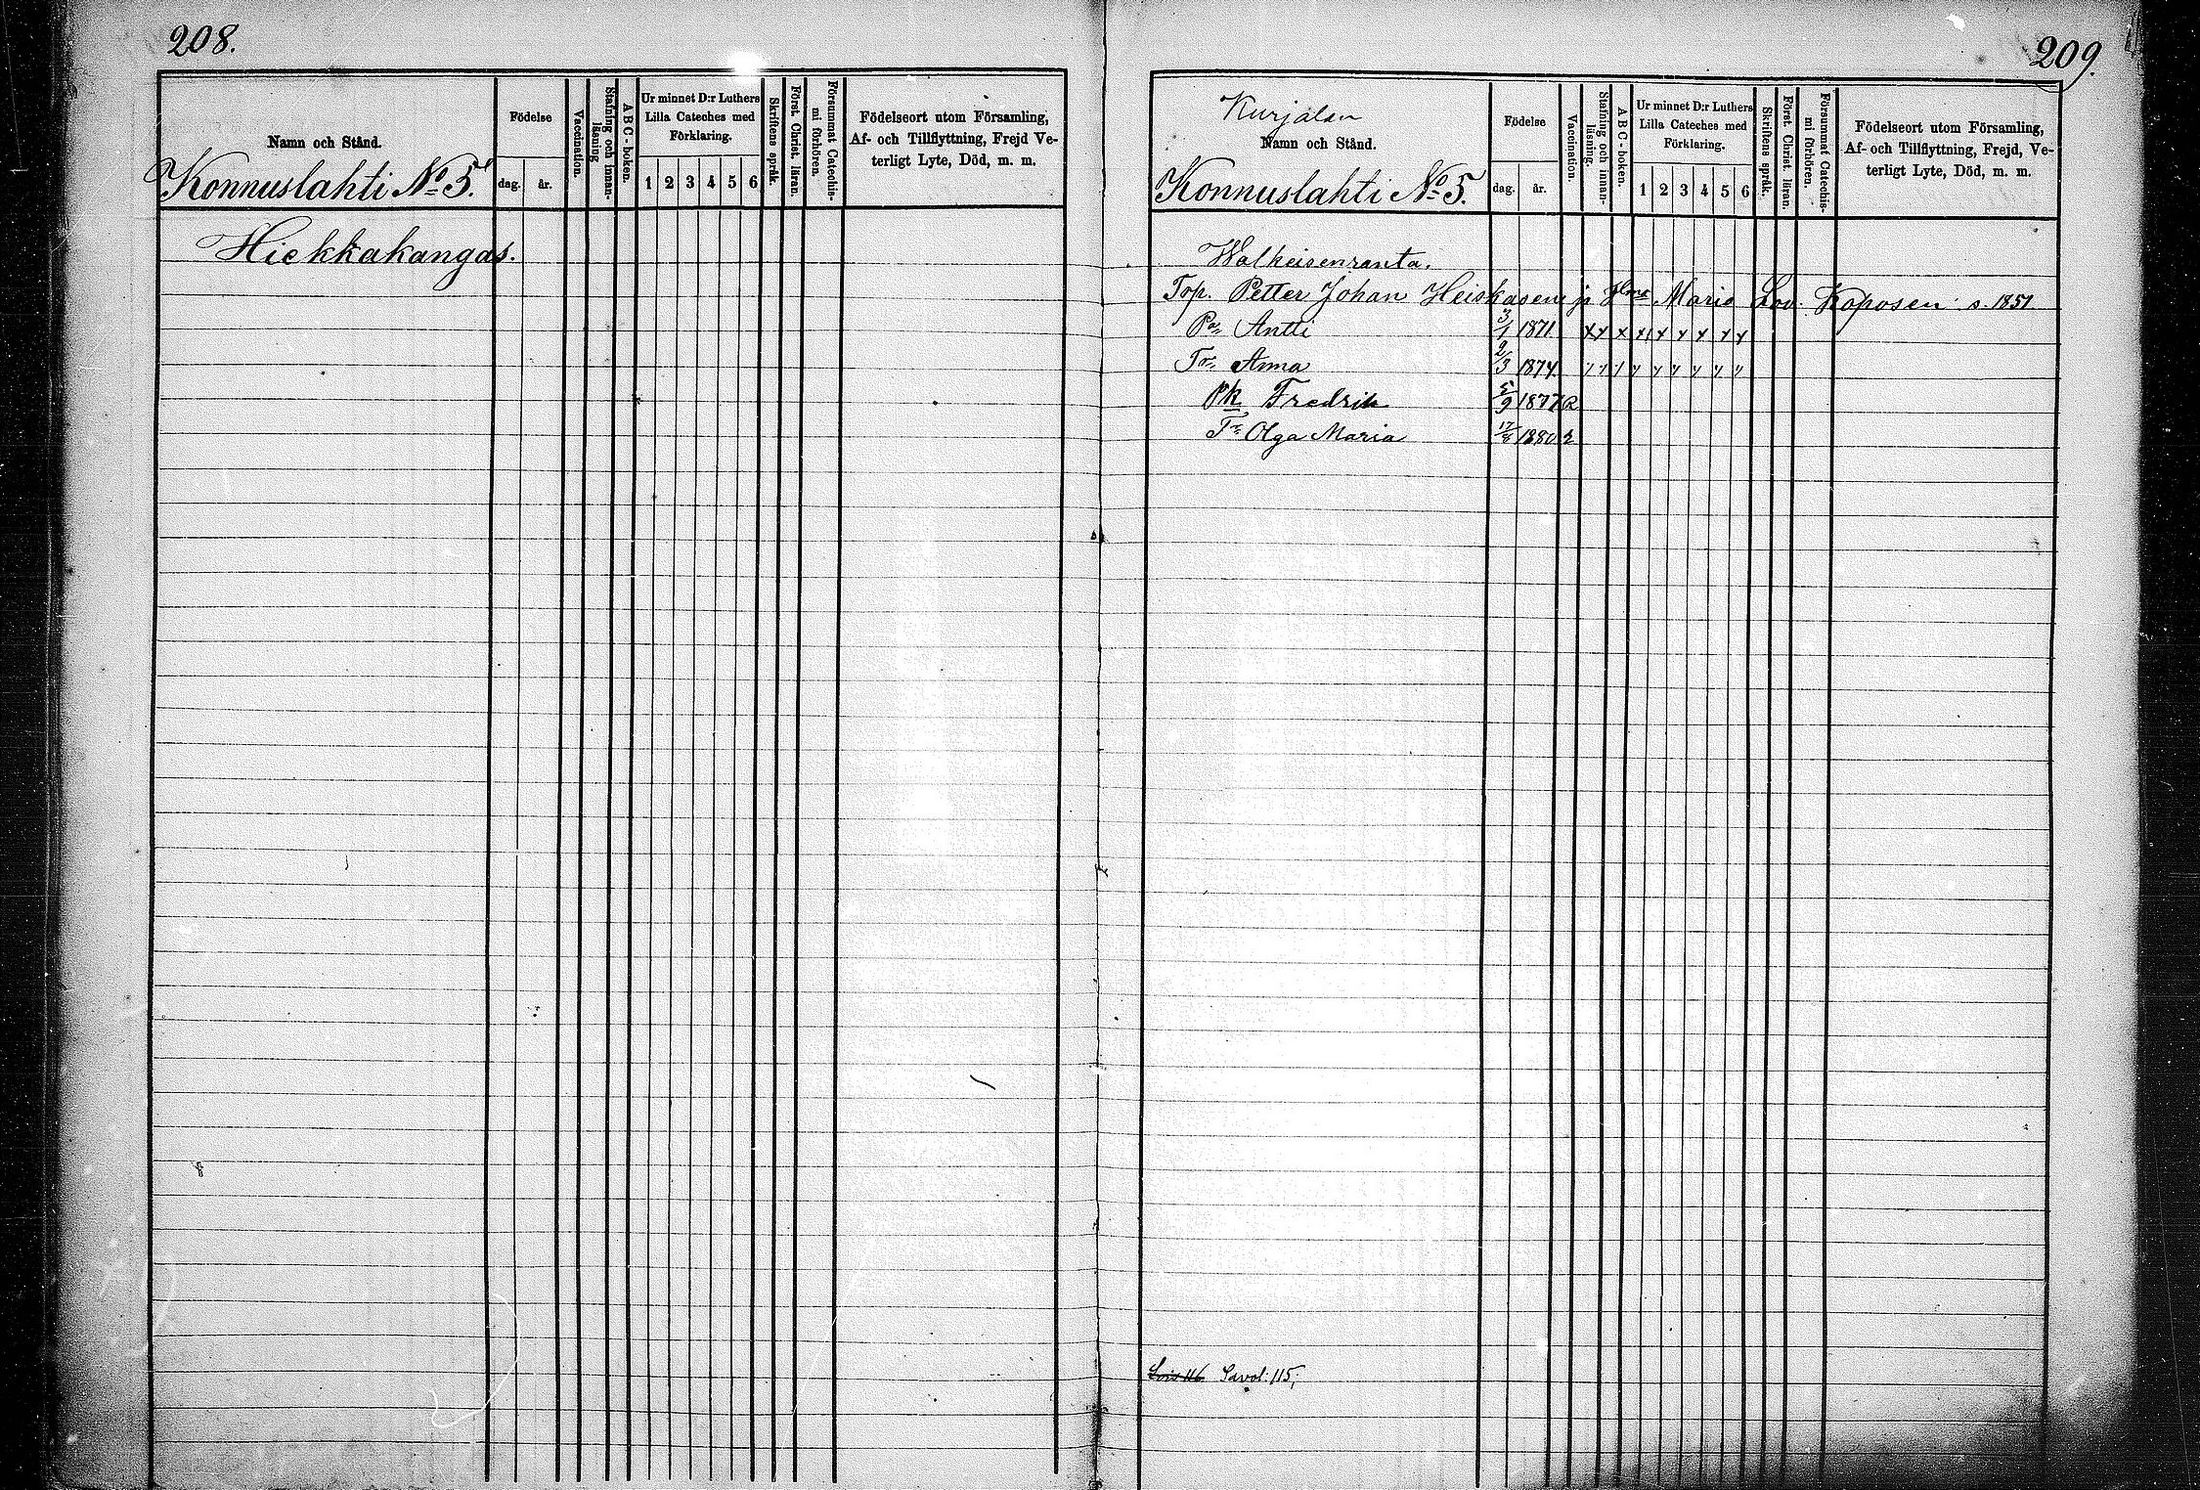 208.
Namn och Stånd.
Konnuslahti No 5.
Födelse
dag.
år.
Vaccination.
Stafning och innan-
läsning
ABC-boken.
Ur minnet D:r Luthers
Lilla Cateches med
Förklaring.
1 2 3 4 5 6
Skriftens språk.
Först. Christ. läran.
Försummat Catechis-
mi förhören.
Födelseort utom Församling,
Af- och Tillflyttning, Frejd Ve-
terligt Lyte, Död, m. m.
Hiekkakangas.
209.
Kurjalan
Namn och Stånd.
Konnuslahti No 5.
Födelse
dag.
år.
Vaccination.
Stafning och innan-
läsning.
ABC-boken.
Ur minnet D:r Luthers
Lilla Cateches med
Förklaring.
1 2 3 4 5 6
Skriftens språk.
Först. Christ. läran.
Försummat Catechis-
mi förhören.
Födelseort utom Församling,
Af- och Tillflyttning, Frejd, Ve-
terligt Lyte, Död, m. m.
Walkeisenranta.
Top. Petter Johan Heiskasen ja Maria Lov. Koposen s. 1851
Pa Antti 3/1 1871 x x x x x x x x x
Tr Anna 2/3 1874
Pk Fredrik 5/9 1877 R
Tr Olga Maria 1880
Savol. 115;